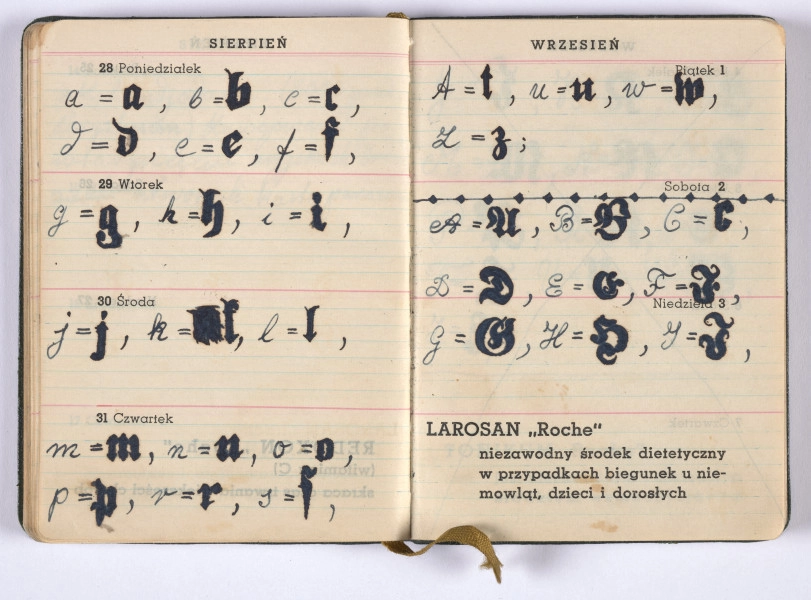 SIERPIEŃ
28 Poniedziałek
a = a, b = b, c = c,
d = d, e = e, f = f,
29 Wtorek
g = g, h = h, i = i,
30 Środa
j = j, k = k, l = l,
31 Czwartek
m = m, n = n, o = o,
p = p, r = r, s = ſ,
WRZESIEŃ
Piątek 1
t = t, u = u, w = w,
z = z;
Sobota 2
A = A, B = B, C = C,
D = D, E = E, F = F,
Niedziela 3
G = G, H = H, J = J,
LAROSAN „Roche“
niezawodny środek dietetyczny
w przypadkach biegunek u nie-
mowląt, dzieci i dorosłych